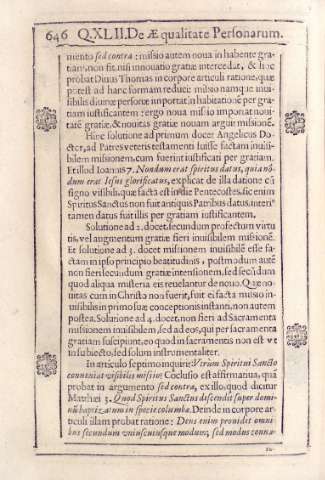 646 Q. XLIII. De Æqualitate Personarum.
mento sed contra: missio autem noua in habente gra-
tiam, non fit, nisi innouatio gratiæ intercedat, & hoc
probat Diuus Thomas in corpore articuli ratione, quæ
potest ad hanc formam reduci: missio namque inui-
sibilis diuinæ personæ importat inhabitationẽ per gra-
tiam iustificantem: ergo noua missio importat noui-
tatẽ gratiæ, & nouitas gratiæ nouam arguit missionẽ.
Hinc solutione ad primum docet Angelicus Do-
ctor, ad Patres veteris testamenti fuisse factam inuisi-
bilem missionem, cum fuerint iustificati per gratiam.
Et illod Ioannis 7. Nondum erat spiritus datus, quia nõ-
dum erat Iesus glorificatus, explicat de illa datione cũ
signo visibili, quæ facta est in die Pentecostes, sic enim
Spiritus Sanctus non fuit antiquis Patribus datus, inter-
tamen datus fuit illis per gratiam iustificantem.
Solutione ad 2. docet, secundum profectum virtu
tis, vel augmentum gratiæ fieri inuisibilem missionẽ.
Et solutione ad 3. docet missionem inuisibilẽ esse fa-
ctam in ipso principio beatitudinis, postmodum autẽ
non fieri secundum gratiæ intensionem, sed secũdum
quod aliqua misteria eis reuelantur de nouo. Quæ no-
uitas cum in Christo non fuerit, fuit ei facta missio in-
uisibilis in primo suæ conceptionis instanti, non autem
postea. Solutione ad 4. docet, non fieri ad Sacramenta
missionem inuisibilem, sed ad eos, qui per sacramenta
gratiam suscipiunt, eo quod in sacramentis non est vt
in subiecto, sed solum instrumentaliter.
In articulo septimo inquirit: Vtrum Spiritui Sancto
conueniat visibilis missio? Cõclusio est affirmatiua, quã
probat in argumento sed contra, ex illo, quod dicitur
Matthæi 3. Quod Spiritus Sanctus descendit super domi-
nũ baptizatum in specie columbæ. Deinde in corpore ar-
ticuli illam probat ratione: Deus enim prouidet omni-
bus secundum vniuscuiusque modum; sed modus conna-